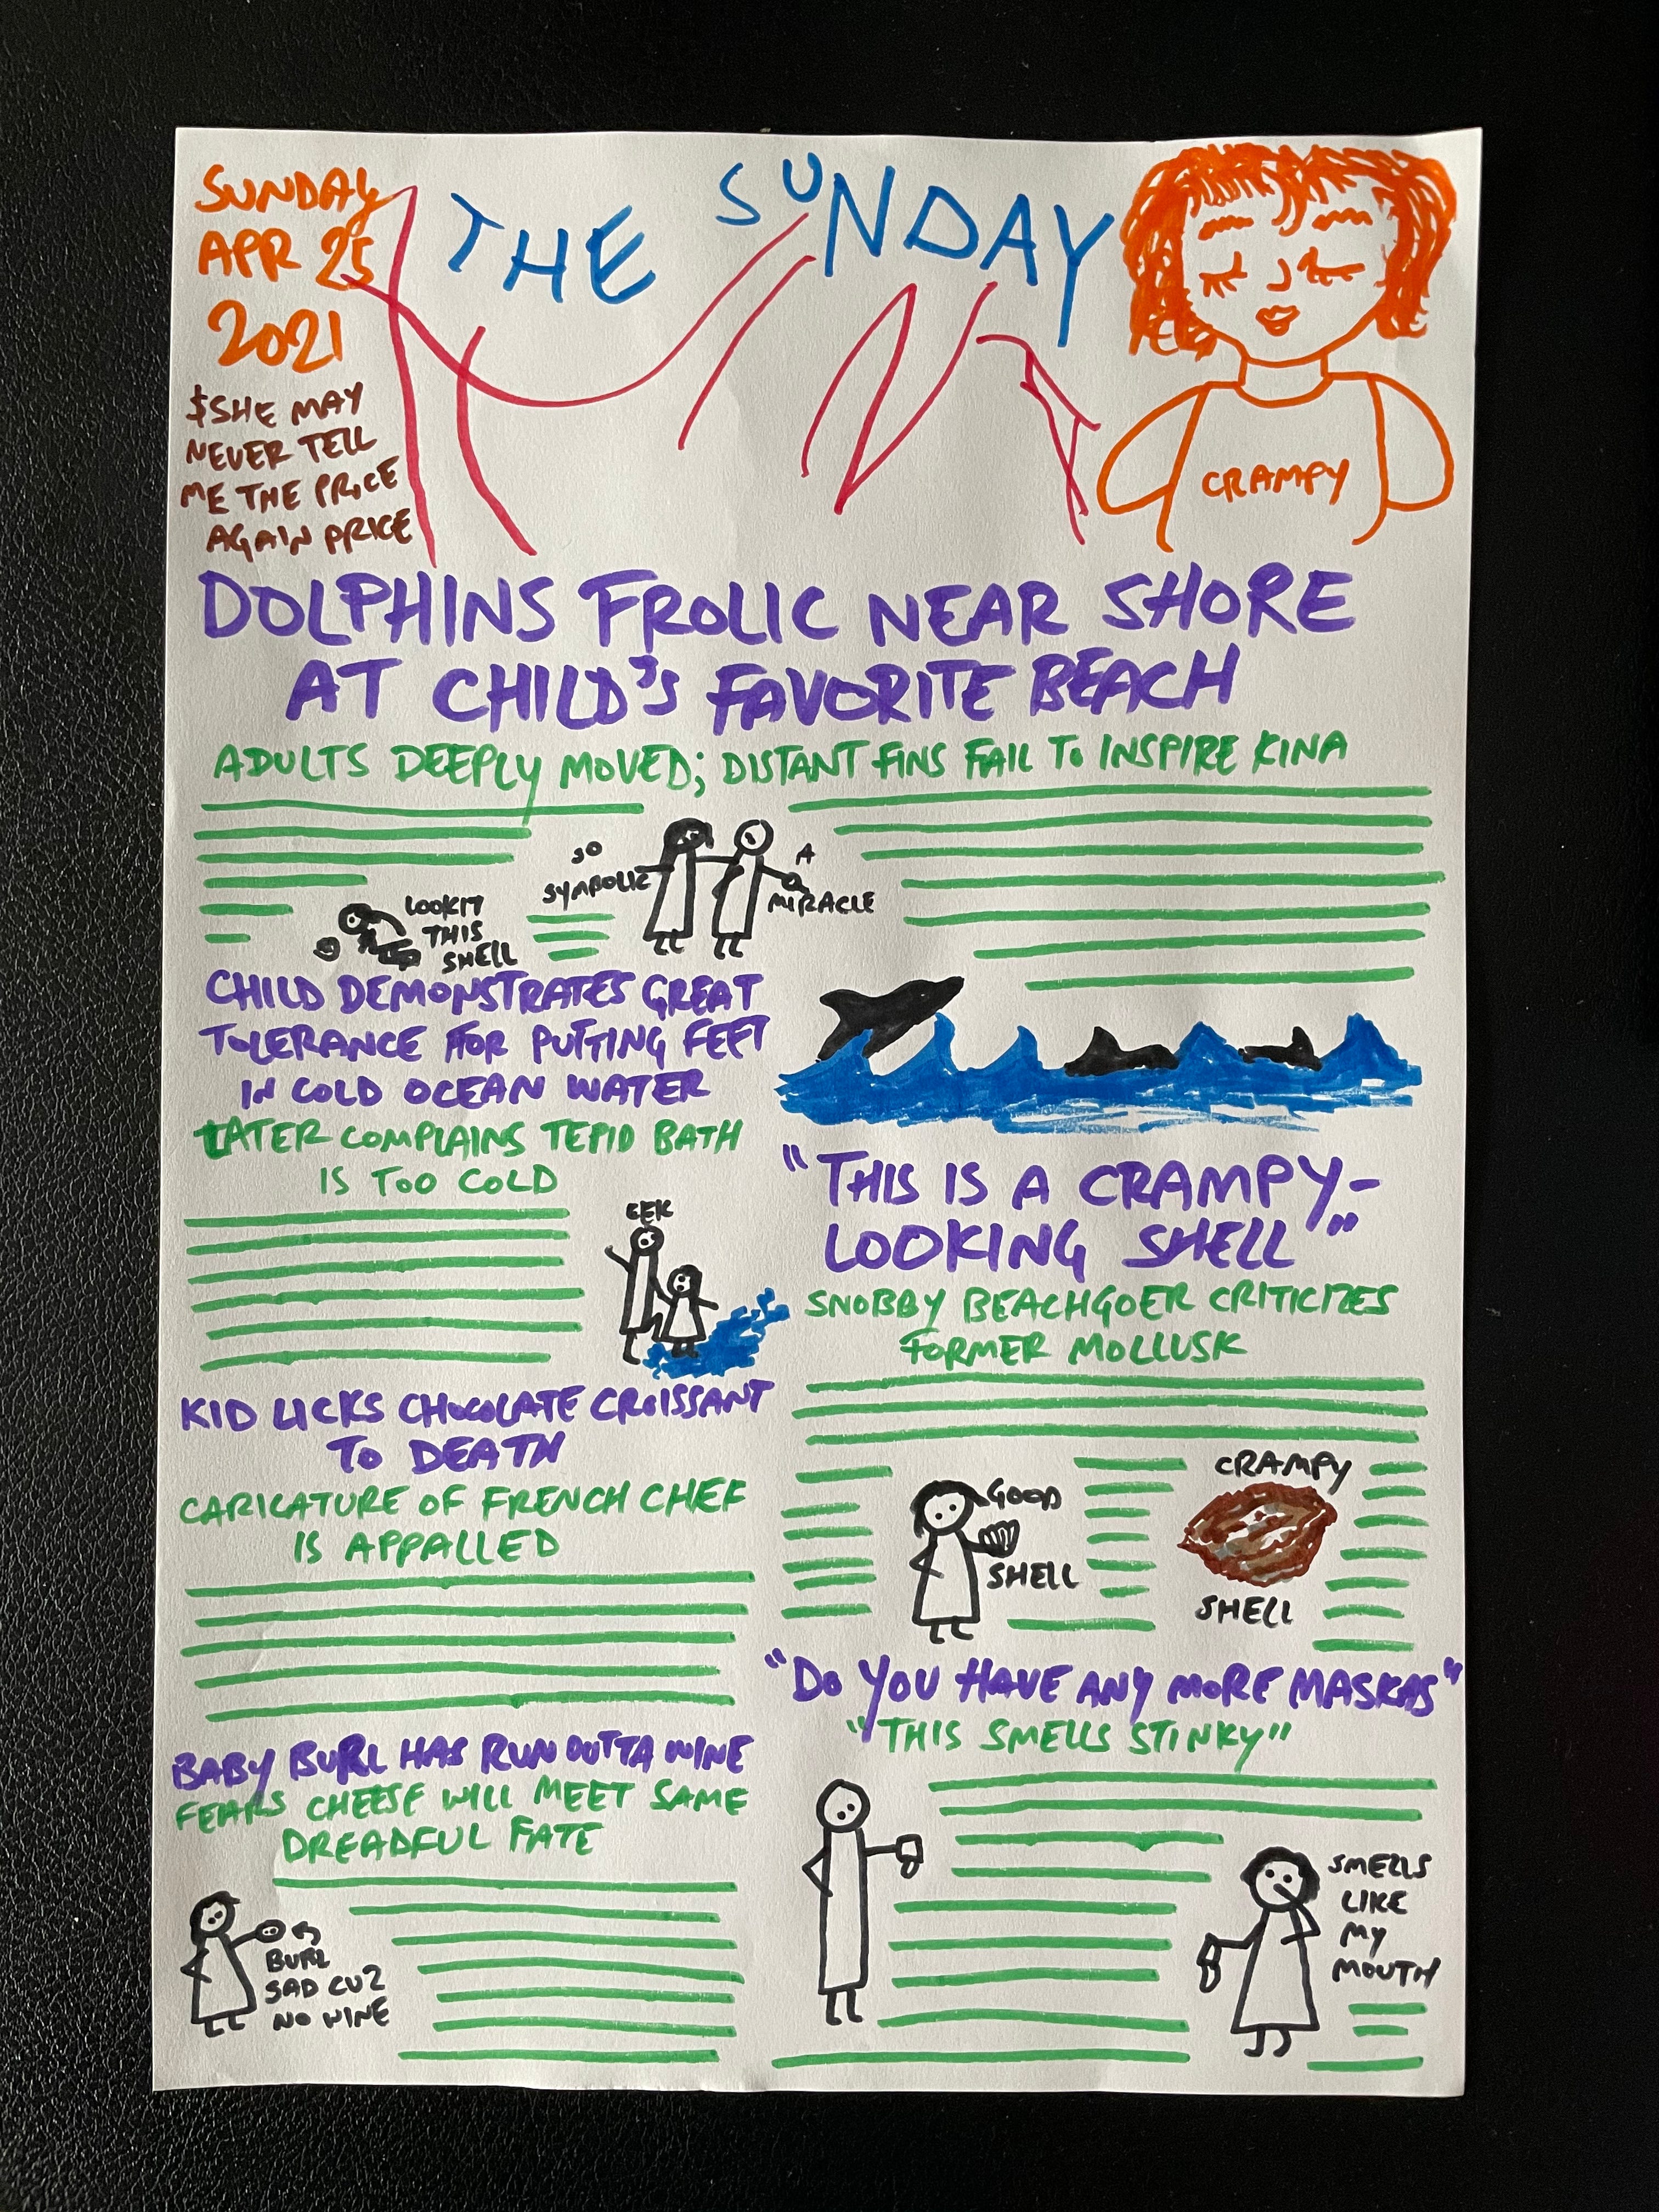 SUNDAY
APR 25
2021
$SHE MAY
NEVER TELL
ME THE PRICE
AGAIN PRICE
THE SUNDAY
KINA
CRAMPY
DOLPHINS FROLIC NEAR SHORE
AT CHILD'S FAVORITE BEACH
ADULTS DEEPLY MOVED; DISTANT FINS FAIL TO INSPIRE KINA
SO
SYMBOLIC
A
MIRACLE
LOOKIT
THIS
SHELL
CHILD DEMONSTRATES GREAT
TOLERANCE FOR PUTTING FEET
IN COLD OCEAN WATER
LATER COMPLAINS TEPID BATH
IS TOO COLD
EEK
KID LICKS CHOCOLATE CROISSANT
TO DEATH
CARICATURE OF FRENCH CHEF
IS APPALLED
BABY BURL HAS RUN OUTTA WINE
FEARS CHEESE WILL MEET SAME
DREADFUL FATE
BURL
SAD CUZ
NO WINE
"THIS IS A CRAMPY-
LOOKING SHELL"
SNOBBY BEACHGOER CRITICIZES
FORMER MOLLUSK
GOOD
SHELL
CRAMPY
SHELL
"DO YOU HAVE ANY MORE MASKAS"
"THIS SMELLS STINKY"
SMELLS
LIKE
MY
MOUTH